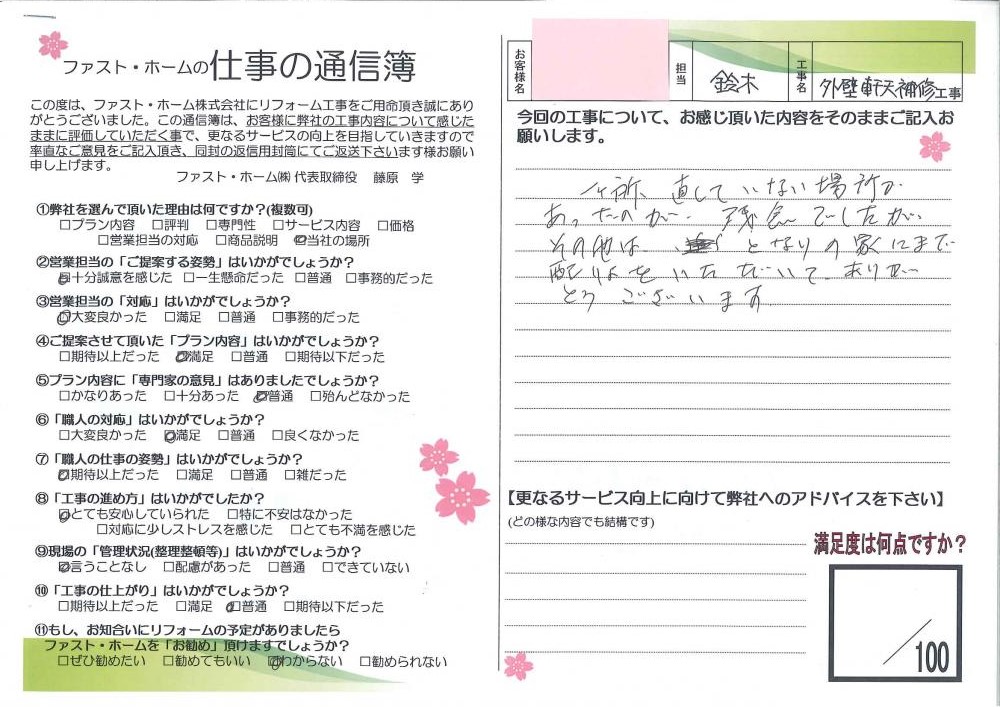 ファスト・ホームの仕事の通信簿
この度は、ファスト・ホーム株式会社にリフォーム工事をご用命頂き誠にあり
がとうございました。この通信簿は、お客様に弊社の工事内容について感じた
ままに評価していただく事で、更なるサービスの向上を目指していきますので
率直なご意見をご記入頂き、同封の返信用封筒にてご返送下さいます様お願い
申し上げます。
ファスト・ホーム㈱ 代表取締役　藤原　学
①弊社を選んで頂いた理由は何ですか？(複数可)
□プラン内容　□評判　□専門性　□サービス内容　□価格
□営業担当の対応　□商品説明　□当社の場所
②営業担当の「ご提案する姿勢」はいかがでしょうか？
□十分誠意を感じた　□一生懸命だった　□普通　□事務的だった
③営業担当の「対応」はいかがでしょうか？
□大変良かった　□満足　□普通　□事務的だった
④ご提案させて頂いた「プラン内容」はいかがでしょうか？
□期待以上だった　□満足　□普通　□期待以下だった
⑤プラン内容に「専門家の意見」はありましたでしょうか？
□かなりあった　□十分あった　□普通　□殆んどなかった
⑥「職人の対応」はいかがでしょうか？
□大変良かった　□満足　□普通　□良くなかった
⑦「職人の仕事の姿勢」はいかがでしょうか？
□期待以上だった　□満足　□普通　□雑だった
⑧「工事の進め方」はいかがでしたか？
□とても安心していられた　□特に不安はなかった
□対応に少しストレスを感じた　□とても不満を感じた
⑨現場の「管理状況(整理整頓等)」はいかがでしょうか？
□言うことなし　□配慮があった　□普通　□できていない
⑩「工事の仕上がり」はいかがでしょうか？
□期待以上だった　□満足　□普通　□期待以下だった
⑪もし、お知合いにリフォームの予定がありましたら
ファスト・ホームを「お勧め」頂けますでしょうか？
□ぜひ勧めたい　□勧めてもいい　□わからない　□勧められない
お客様名　担当　鈴木　工事名　外壁軒天補修工事
今回の工事について、お感じ頂いた内容をそのままご記入お
願いします。
一ヶ所、直していない場所が
あったのが、残念でしたが、
その他は、となりの家にまで
配りょをいただいて、ありが
とうございます
【更なるサービス向上に向けて弊社へのアドバイスを下さい】
(どの様な内容でも結構です)
満足度は何点ですか？
／100